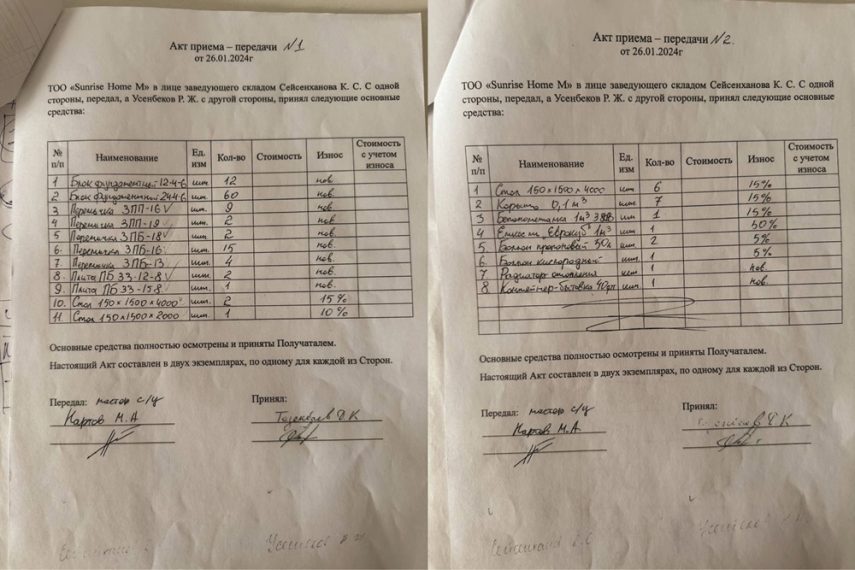 Акт приема – передачи №1
от 26.01.2024г
ТОО «Sunrise Home M» в лице заведующего складом Сейсенханова К. С. С одной
стороны, передал, а Усенбеков Р. Ж. с другой стороны, принял следующие основные
средства:
№ п/п Наименование Ед. изм Кол-во Стоимость Износ Стоимость с учетом износа
1 Блок фундаментный 12-4-6 шт. 12 нов.
2 Блок фундаментный 24-4-6 шт. 60 нов.
3 Перемычка 3ПП-16 ✓ шт. 9 нов.
4 Перемычка 3ПП-19 ✓ шт. 2 нов.
5 Перемычка 3ПБ-18 ✓ шт. 2 нов.
6. Перемычка 3ПБ-16 ✓ шт. 15 нов.
7 Перемычка 3ПБ-13 шт. 4 нов.
8. Плита ПБ 33-12-8 ✓ шт. 2 нов.
9. Плита ПБ 33-15-8 шт. 1 нов.
10. Стол 150×1500×4000 шт. 2 15%
11. Стол 150×1500×2000 шт. 1 10%
Основные средства полностью осмотрены и приняты Получаталем.
Настоящий Акт составлен в двух экземплярах, по одному для каждой из Сторон.
Передал: мастер с/ц Принял:
Карпов М.А Д К
Акт приема – передачи №2.
от 26.01.2024г
ТОО «Sunrise Home M» в лице заведующего складом Сейсенханова К. С. С одной
стороны, передал, а Усенбеков Р. Ж. с другой стороны, принял следующие основные
средства:
№ п/п Наименование Ед. изм Кол-во Стоимость Износ Стоимость с учетом износа
1 Стол 150×1500×4000 шт 6 15%
2 Корыто 0,1 м³ шт 7 15%
3 1м³ шт 1 15%
4 Емкость "Еврокуб" 1м³ шт. 1 50%
5. Баллон пропановый 50л шт. 2 5%
6. Баллон кислородный шт. 1 5%
7 Радиатор отопления шт 1 нов.
8. Контейнер-бытовка 40 шт. 1 нов.
Основные средства полностью осмотрены и приняты Получаталем.
Настоящий Акт составлен в двух экземплярах, по одному для каждой из Сторон.
Передал: мастер с/ц Принял:
Карпов М.А